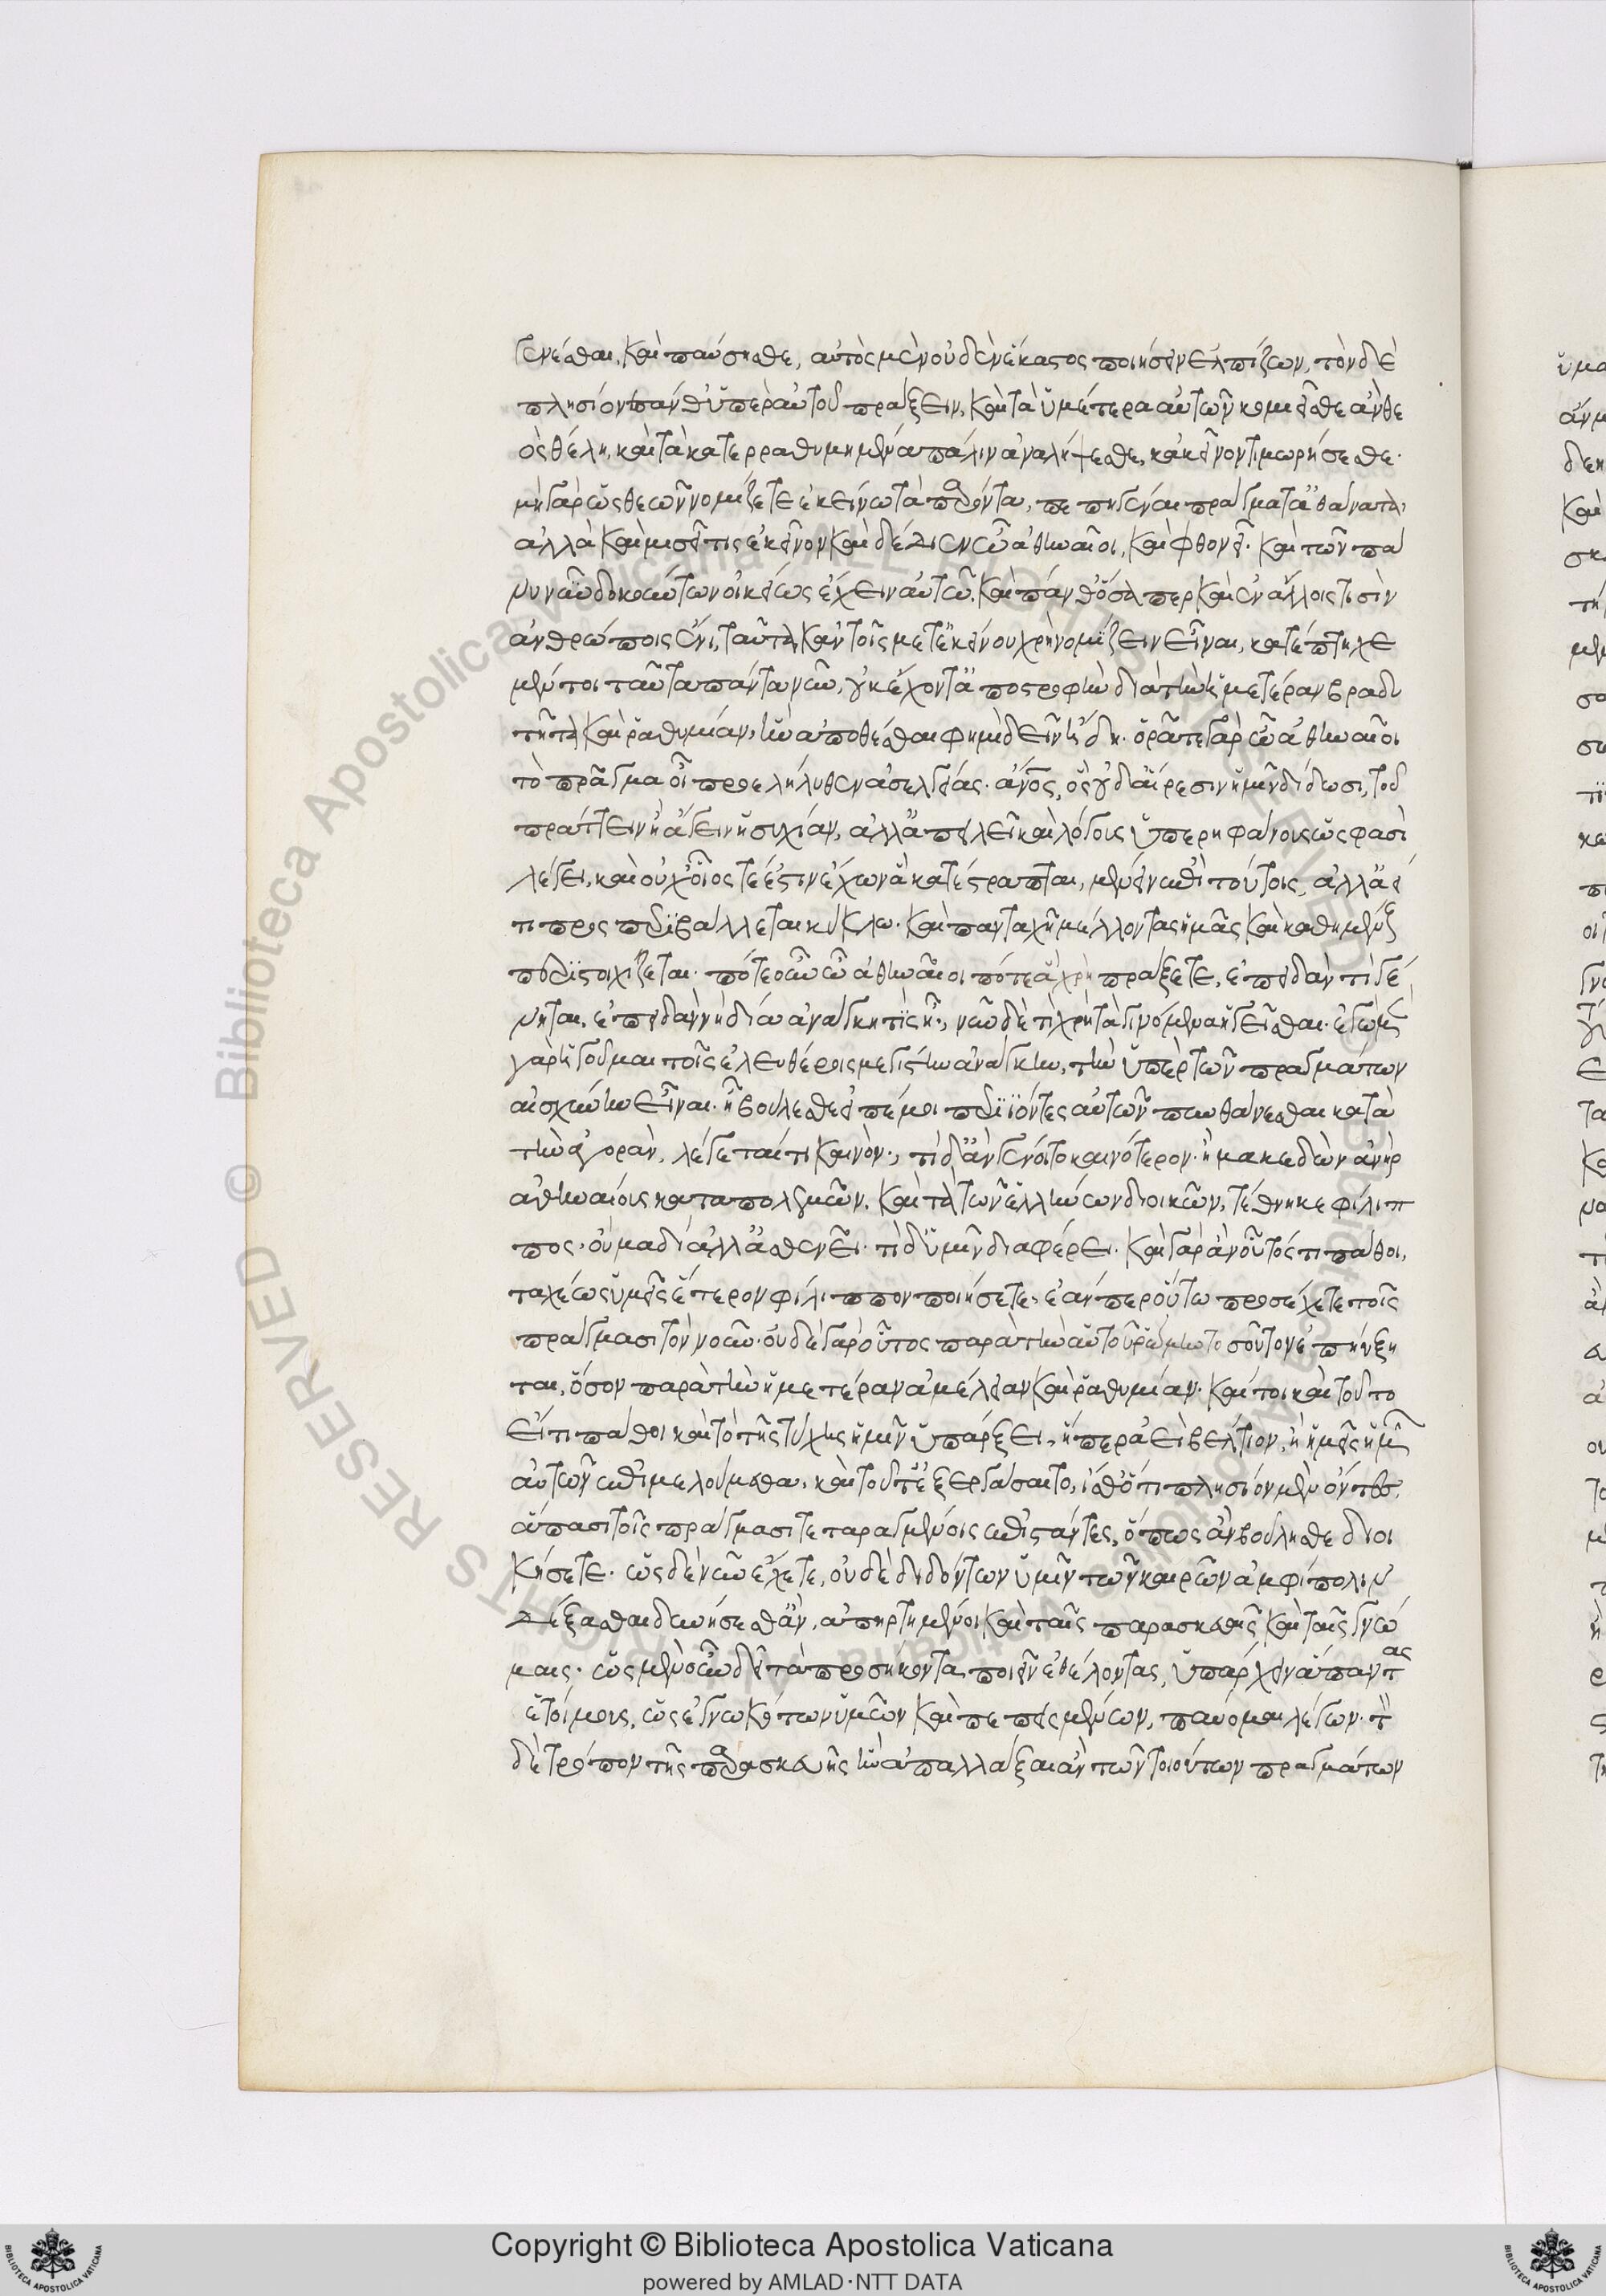 γενέσθαι, καὶ παύσησθε, αὐτὸς μὲν οὐδὲν ἕκαστος ποιήσειν ἐλπίζων, τὸν δὲ
πλησίον πάνθ' ὑπὲρ αὐτοῦ πράξειν, καὶ τὰ ὑμέτερα αὐτῶν κομιεῖσθε ἂν θε
ὸς θέλη, καὶ τὰ κατερραθυμημένα πάλιν ἀναλήψεσθε, κἀκεῖνον τιμωρήσεσθε·
μὴ γὰρ ὡς θεῶ νομίζετε ἐκείνω τὰ παρόντα, πεπηγέναι πράγματα ἀθάνατα,
ἀλλὰ καὶ μισεῖ τις ἐκεῖνον καὶ δέδιεν ὦ ἀθηναῖοι, καὶ φθονεῖ· καὶ τῶν πά
νυ νῦν δοκούντων οἰκείως ἔχειν αὐτῶ. καὶ πάνθ' ὅσα περ καὶ ἐν ἄλλοις τισὶν
ἀνθρώποις ἔνι, ταῦτα κἀν τοῖς μετ' ἐκείνου χρὴ νομίζειν εἶναι, κατέπτηχε
μέντοι ταῦτα πάντα νῦν, οὐκ ἔχοντα ἀποστροφὴν διὰ τὴν ἡμετέραν βραδυ
τῆτα καὶ ῥαθυμίαν, ἣν ἀποθέσθαι φημὶ δεῖν ἤδη· ὁρᾶτε γὰρ ὦ ἀθηναῖοι
τὸ πρᾶγμα οἷ προελήλυθεν ἀσελγείας ἄνος, ὃς οὐδ' αἵρεσιν ἡμῖν δίδωσι, τοῦ
πράττειν ἢ ἄγειν ἡσυχίαν, ἀλλ' ἀπειλεῖ καὶ λόγους ὑπερηφάνους ὥς φασὶ
λέγει, καὶ οὐχ οἷός τέ ἐστιν ἔχων ἃ κατέστραπται, μένειν ἐπὶ τούτοις, ἀλλ' ἀεί
τι προσπεριβάλλεται κύκλω· καὶ πανταχῆ μέλλοντας ἡμᾶς καὶ καθημένους
περιστοιχίζεται· πότ' οὖν ὦ ἀθηναῖοι πότε ἃ χρὴ πράξετε, ἐπειδὰν τί γέ
νηται, ἐπειδὰν νὴ δία ἀνάγκη τὶς ᾖ·, νῦν δὲ τί χρὴ τὰ γινόμενα ἡγεῖσθαι· ἐγὼ μὲν
γὰρ ἡγοῦμαι τοῖς ἐλευθέροις μεγίστην ἀνάγκην, τὴν ὑπὲρ τῶν πραγμάτων
αἰσχύνην εἶναι. ἢ βούλεσθε εἰπέ μοι περιϊόντες αὐτῶν πυνθάνεσθαι κατὰ
τὴν ἀγορὰν, λέγεταί τι καινὸν·, τί δ' ἂν γένοιτο καινότερον· ἢ μακεδὼν ἀνὴρ
ἀθηναίους καταπολεμῶν, καὶ τὰ τῶν ἑλλήνων διοικῶν, τέθνηκε φίλιπ
πος· οὐ μὰ δί' ἀλλ' ἀσθενεῖ· τί δ' ὑμῖν διαφέρει. καὶ γὰρ ἂν οὗτός τι πάθοι,
ταχέως ὑμεῖς ἕτερον φίλιππον ποιήσετε, ἐάν περ οὕτω προσέχετε τοῖς
πράγμασι τὸν νοῦν· οὐδὲ γὰρ οὗτος παρὰ τὴν αὑτοῦ ῥώμην τοσοῦτον ἐπηύξη
ται, ὅσον παρὰ τὴν ἡμετέραν ἀμέλειαν καὶ ῥαθυμίαν. καί τοι καὶ τοῦτο
εἴ τι πάθοι καὶ τὸ τῆς τύχης ἡμῖν ὑπάρξει, ἥπερ ἀεὶ βέλτιον, ἢ ἡμεῖς ἡμῶν
αὐτῶν ἐπιμελούμεθα, καὶ τοῦτ' ἐξεργάσαιτο, ἴσθ' ὅτι πλησίον μὲν ὄντες,
ἅπασι τοῖς πράγμασι τεταραγμένοις ἐπιστάντες, ὅπως ἂν βούλησθε διοι
κήσετε· ὡς δὲ νῦν ἔχετε, οὐδὲ διδόντων ὑμῖν τῶν καιρῶν ἀμφίπολιν
δέξασθαι δυνήσεσθ' ἂν, ἀπηρτημένοι καὶ ταῖς παρασκευαῖς καὶ ταῖς γνώ
μαις· ὡς μὲν οὖν δεῖ τὰ προσήκοντα ποιεῖν ἐθέλοντας, ὑπάρχειν ἅπαντας
ἑτοίμους, ὡς ἐγνωκότων ὑμῶν καὶ πεπεισμένων, παύομαι λέγων· τὸν
δὲ τρόπον τῆς παρασκευῆς ἣν ἀπαλλάξαι ἂν τῶν τοιούτων πραγμάτων
Copyright © Biblioteca Apostolica Vaticana
powered by AMLAD·NTT DATA